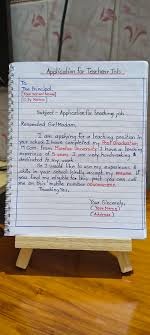 Application for Teacher Job
To,
The Principal,
(City Name)
Subject - Application for teaching job
Respected Sir/Madam,
I am applying for a teaching position in
your school. I have completed my Post Graduation
M.Com from Mumbai University. I have a teaching
experience of 5 years. I am very hardworking &
dedicated to my work.
So I would like to use my experience &
skills in your school. Kindly accept my resume. If
you find me eligible for this post, you can call
me on this mobile number
Thanking You,
Your Sincerely,
(Your Name)
(Address)